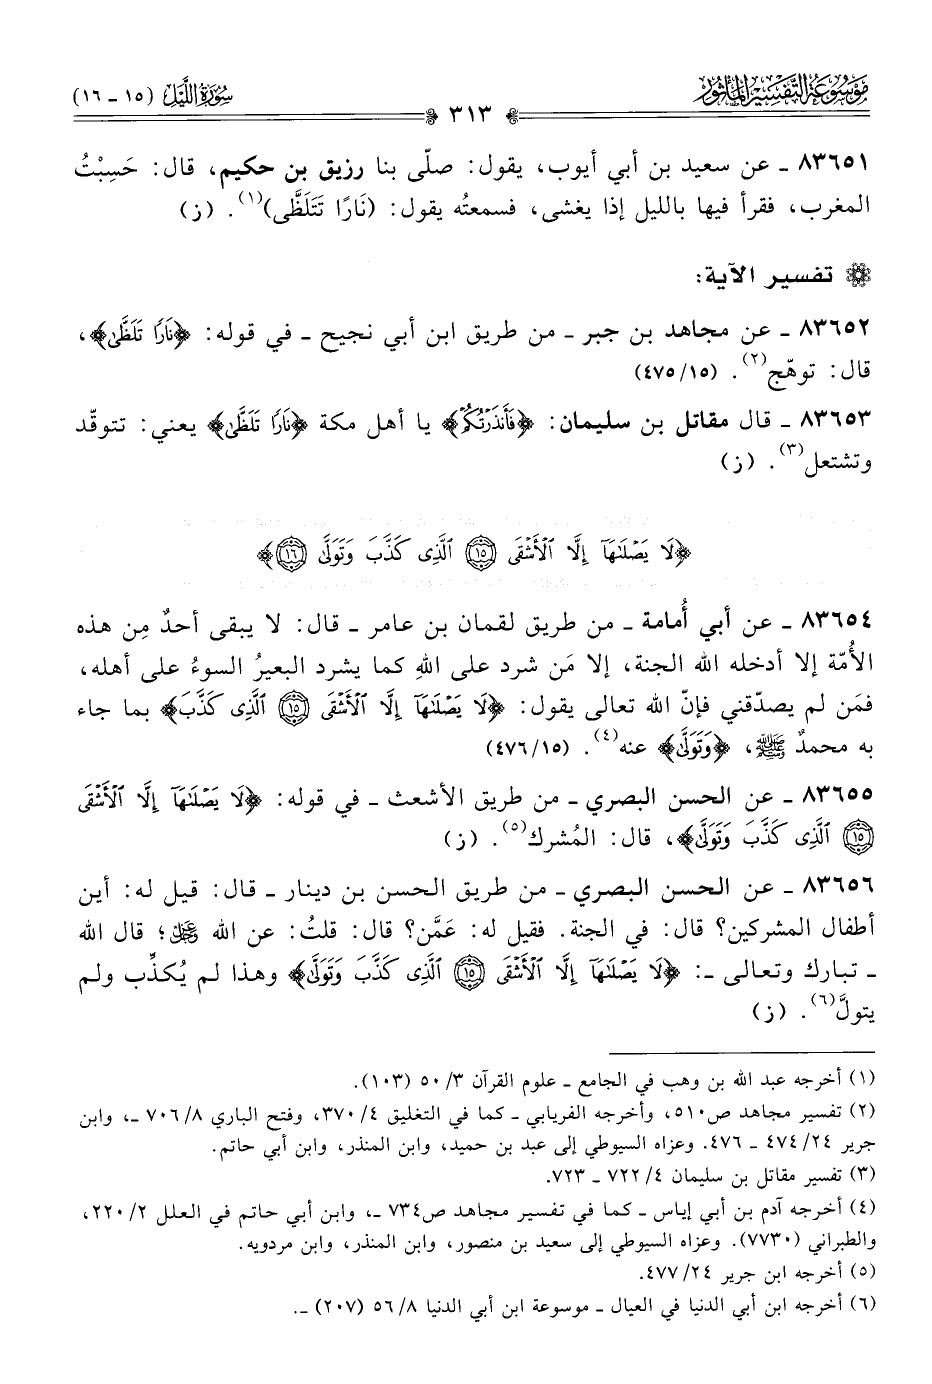 مَوْسُوعَةُ التَّفْسِيرِ المَأْثُور
سُورَةُ اللَّيْل (١٥ - ١٦)
٣١٣
٨٣٦٥١ ـ عن سعيد بن أبي أيوب، يقول: صلّى بنا رزيق بن حكيم، قال: حَسِبْتُ
المغرب، فقرأ فيها بالليل إذا يغشى، فسمعتُه يقول: (نَارًا تَتَلَظَّى)(١). (ز)
تفسير الآية:
٨٣٦٥٢ ـ عن مجاهد بن جبر ـ من طريق ابن أبي نجيح ـ في قوله: ﴿نَارًا تَلَظَّىٰ﴾،
قال: توهّج(٢). (١٥/٤٧٥)
٨٣٦٥٣ ـ قال مقاتل بن سليمان: ﴿فَأَنذَرْتُكُمْ﴾ يا أهل مكة ﴿نَارًا تَلَظَّىٰ﴾ يعني: تتوقّد
وتشتعل(٣). (ز)
﴿لَا يَصْلَىٰهَآ إِلَّا ٱلْأَشْقَى ١٥ ٱلَّذِى كَذَّبَ وَتَوَلَّىٰ ١٦﴾
٨٣٦٥٤ ـ عن أبي أُمامة ـ من طريق لقمان بن عامر ـ قال: لا يبقى أحدٌ مِن هذه
الأُمّة إلا أدخله الله الجنة، إلا مَن شرد على اللهِ كما يشرد البعيرُ السوءُ على أهله،
فمَن لم يصدّقني فإنّ الله تعالى يقول: ﴿لَا يَصْلَىٰهَآ إِلَّا ٱلْأَشْقَى ١٥ ٱلَّذِى كَذَّبَ﴾ بما جاء
به محمدٌ ﷺ، ﴿وَتَوَلَّىٰ﴾ عنه(٤). (١٥/٤٧٦)
٨٣٦٥٥ ـ عن الحسن البصري ـ من طريق الأشعث ـ في قوله: ﴿لَا يَصْلَىٰهَآ إِلَّا ٱلْأَشْقَى
١٥ ٱلَّذِى كَذَّبَ وَتَوَلَّىٰ﴾، قال: المُشرك(٥). (ز)
٨٣٦٥٦ ـ عن الحسن البصري ـ من طريق الحسن بن دينار ـ قال: قيل له: أين
أطفال المشركين؟ قال: في الجنة. فقيل له: عَمَّن؟ قال: قلتُ: عن الله ﷿؛ قال الله
ـ تبارك وتعالى ـ: ﴿لَا يَصْلَىٰهَآ إِلَّا ٱلْأَشْقَى ١٥ ٱلَّذِى كَذَّبَ وَتَوَلَّىٰ﴾ وهذا لم يُكذِّب ولم
يتولَّ(٦). (ز)
(١) أخرجه عبد الله بن وهب في الجامع ـ علوم القرآن ٣/ ٥٠ (١٠٣).
(٢) تفسير مجاهد ص٥١٠، وأخرجه الفريابي ـ كما في التغليق ٤/ ٣٧٠، وفتح الباري ٨/ ٧٠٦ ـ، وابن
جرير ٢٤/ ٤٧٤ ـ ٤٧٦. وعزاه السيوطي إلى عبد بن حميد، وابن المنذر، وابن أبي حاتم.
(٣) تفسير مقاتل بن سليمان ٤/ ٧٢٢ ـ ٧٢٣.
(٤) أخرجه آدم بن أبي إياس ـ كما في تفسير مجاهد ص٧٣٤ ـ، وابن أبي حاتم في العلل ٢/ ٢٢٠،
والطبراني (٧٧٣٠). وعزاه السيوطي إلى سعيد بن منصور، وابن المنذر، وابن مردويه.
(٥) أخرجه ابن جرير ٢٤/ ٤٧٧.
(٦) أخرجه ابن أبي الدنيا في العيال ـ موسوعة ابن أبي الدنيا ٨/ ٥٦ (٢٠٧) ـ.